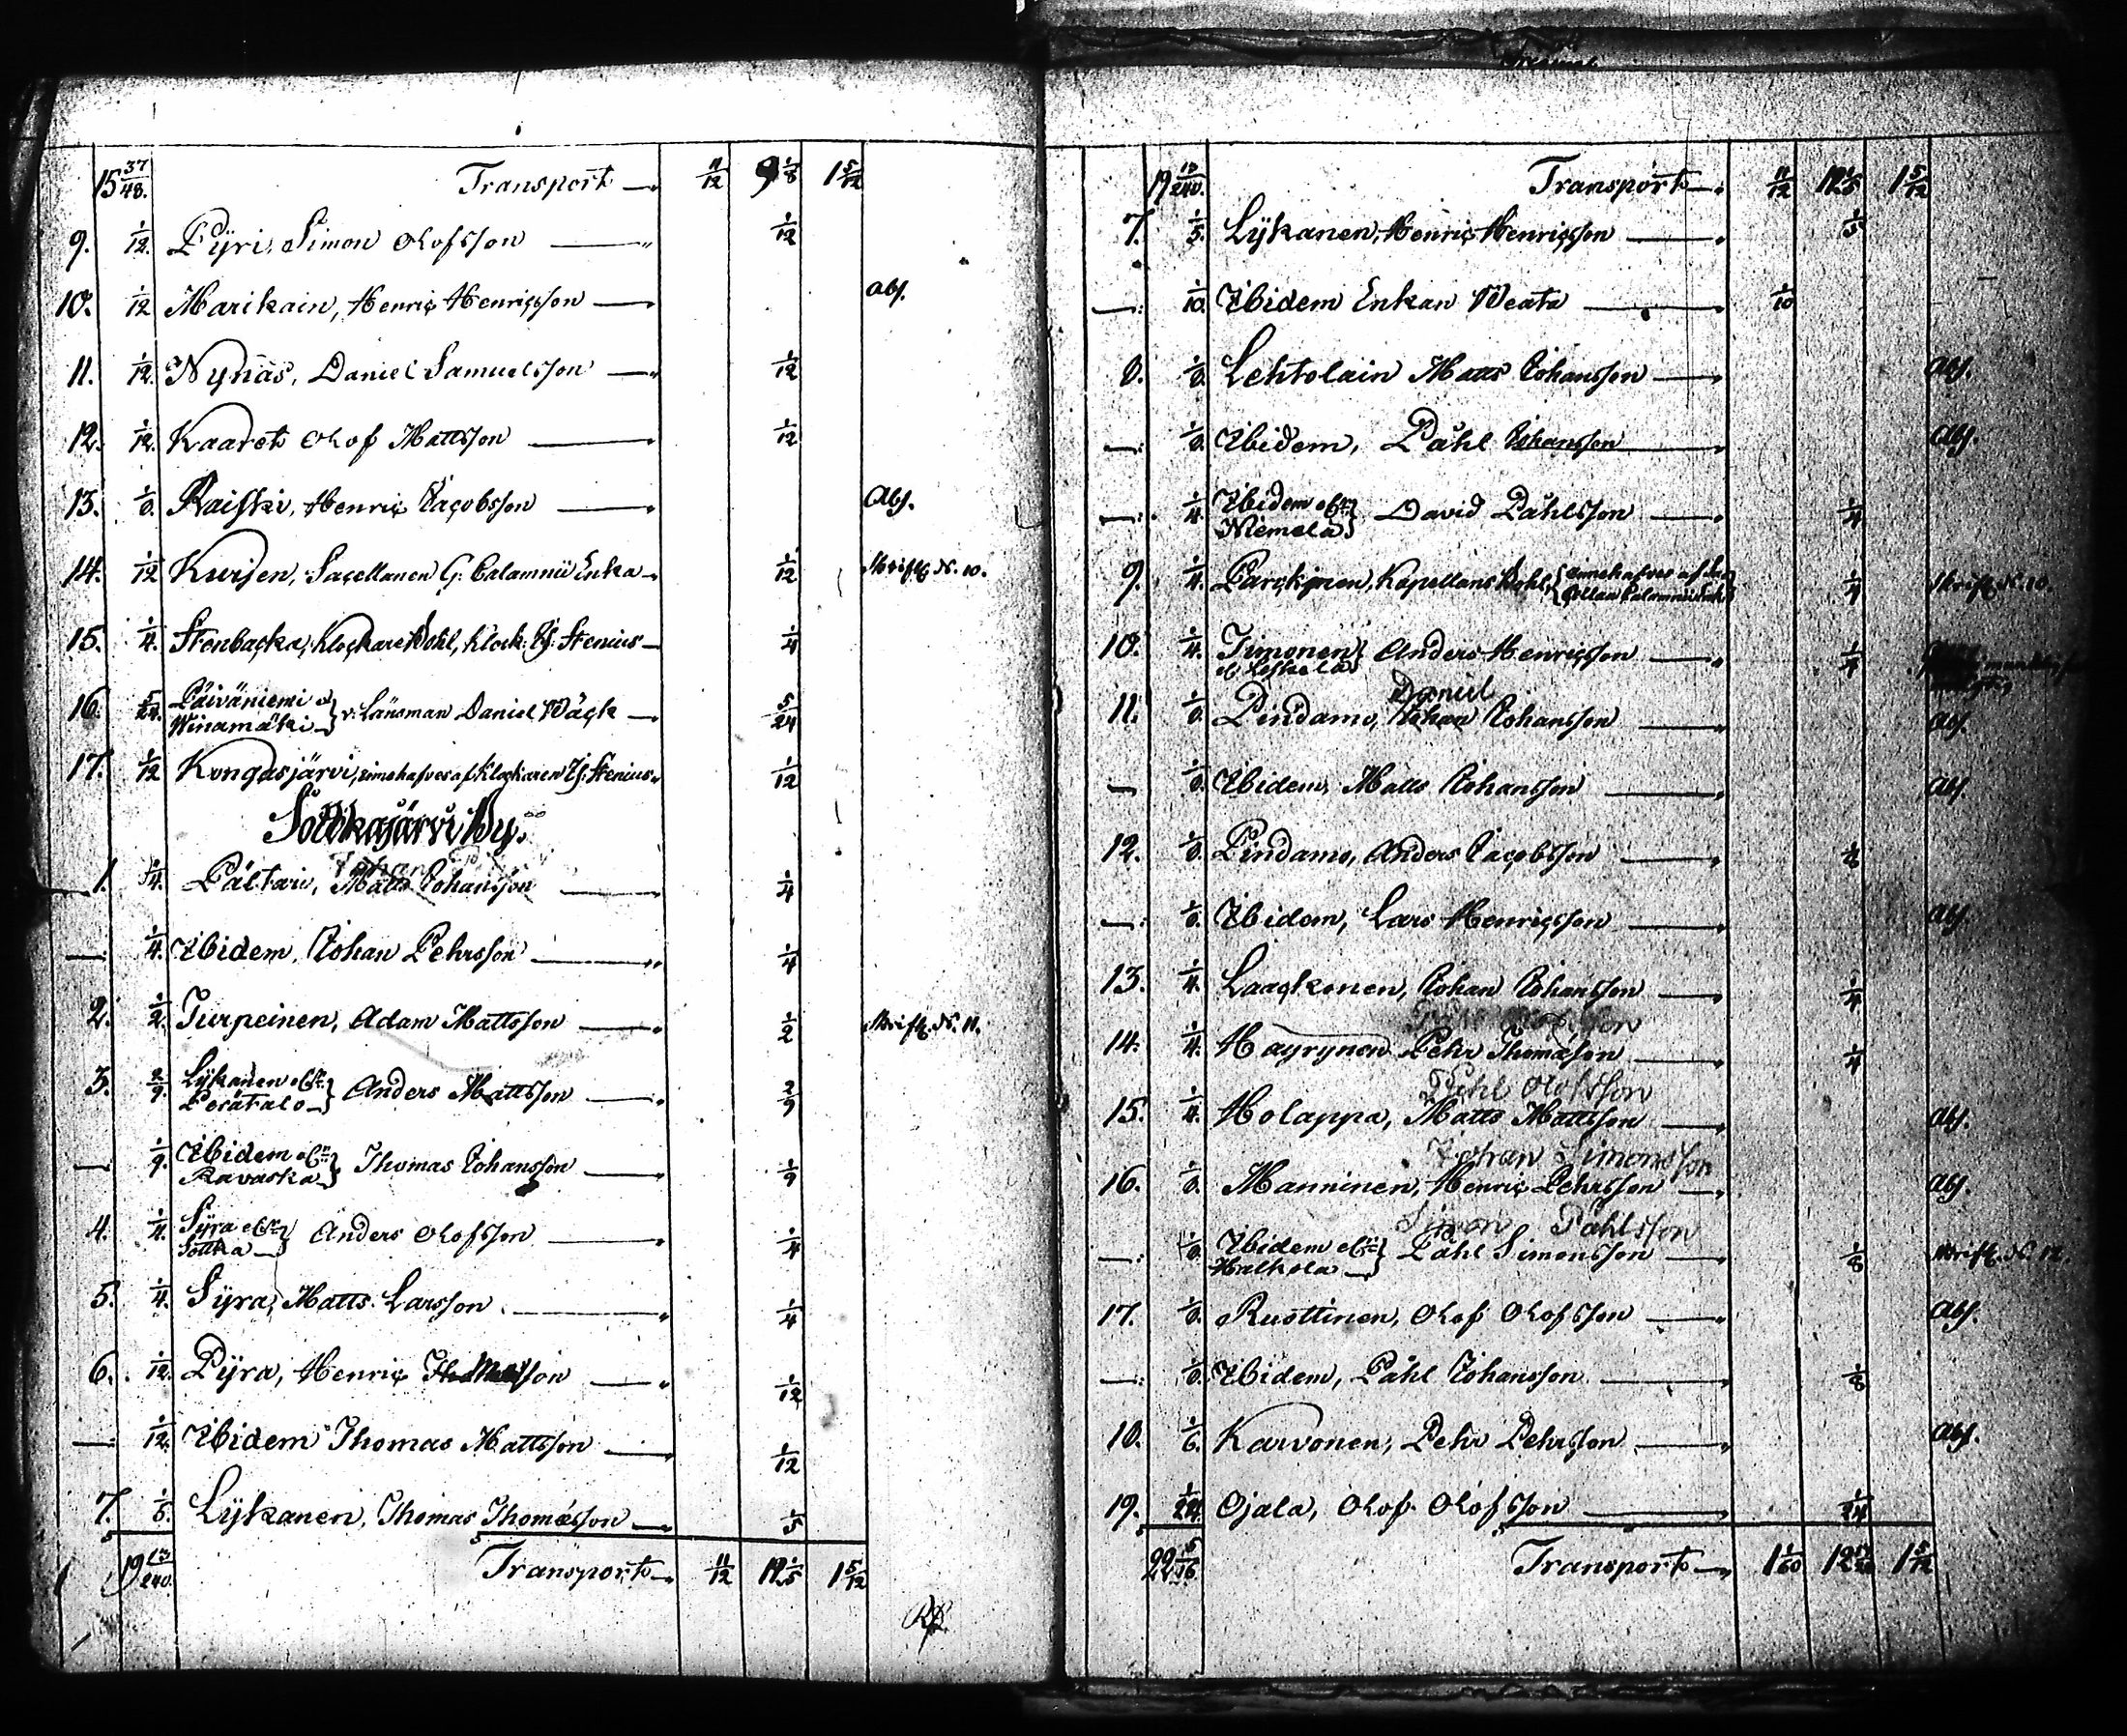 15 37/48. Transport 11/12 9 1/8 1 5/12
9. 1/12. Pÿri, Simon Olofsson 1/12
10. 1/12 Marikain, Henric Henricsson Abs.
11. 1/12. Nynäs, Daniel Samuelsson 1/12
12. 1/12. Kaaret Olof Mattsson 1/12
13. 1/8. Raiski, Henric Jacobsson Abs.
14. 1/12 Kurjen, Sacellanen G. Calamnii Enka 1/12 Skriftl. N. 10.
15. 1/4. Stenbacka, Klockare Bohl, Klock. Zj. Stenius 1/4
16. 5/24. Päiväniemi o
Winamäki v. Länsman Daniel Wäck 5/24
17. 1/12 Kongasjärvi, innehafves af Klockaren Zj. Stenius 1/12
Sottkajärvi By.
1. 1/4. Pältari, Matts Johansson 1/4
1/4. Ibidem, Johan Pehrsson 1/4
2. 1/2. Turpeinen, Adam Mattsson 1/2 Skriftl. N. 11.
3. 2/9. Lÿkanen elr
Perätalo Anders Mattsson 2/9
1/9. Ibidem elr
Ravaska Thomas Johansson 1/9
4. 1/4. Sÿra elr
Sottka Anders Olofsson 1/4
5. 1/4. Sÿra, Matts Larsson 1/4
6. 1/12. Pÿra, Henric Thomasson 1/12
1/12. Ibidem Thomas Mattsson 1/12
7. 1/5. Lÿkanen, Thomas Thomasson 1/5
19 13/240. Transport 11/12 12 1/5 1 5/12
19 13/240. Transport 11/12 12 1/5 1 5/12
7. 1/5. Lÿkanen, Henric Henricsson 1/5
1/10. Ibidem Enkan Beata 1/10
8. 1/8. Lehtolain Matts Johansson Abs.
1/8. Ibidem, Påhl Johansson Abs.
1/4. Ibidem elr
Niemelä David Påhlsson 1/4
9. 1/4. Parckinen, Kapellans Bohl, innehafves af 1/4 Skriftl. N. 10.
10. 1/4. Timonen
el Leskelä Anders Henricsson 1/4
Daniel
11. 1/8. Pindamo, Johan Johansson Abs.
1/8. Ibidem, Matts Johansson Abs.
12. 1/8. Pindamo, Anders Jacobsson 1/8
1/8. Ibidem, Lars Henricsson Abs.
13. 1/4. Laackonen, Johan Johansson 1/4
14. 1/4. Hayrynen Pehr Thomasson 1/4
Påhl Olofsson
15. 1/4. Holappa, Matts Mattsson Abs.
Johan Simonsson
16. 1/8. Manninen, Henric Pehrsson Abs.
Simon Påhlsson
1/8. Ibidem elr
Halkola Påhl Simonsson 1/8 Skriftl. N. 12.
17. 1/8. Ruottinen, Olof Olofsson Abs.
1/8. Ibidem, Påhl Johansson 1/8
18. 1/6. Karvonen, Pehr Pehrsson Abs.
19. 1/24. Ojala, Olof Olofsson 1/24
22 5/16. Transport 1 1/60 1 5/12